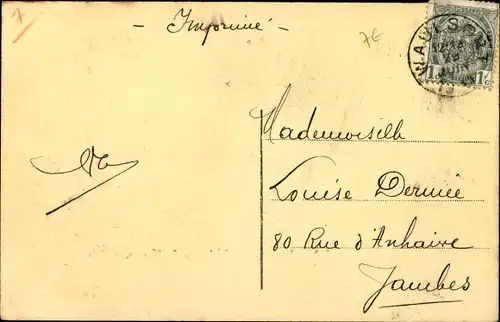 7
- Imprimé -
7E
1c 1c
Mademoiselle
Louise Dermée
80 Rue d'Anhaive
Jambes